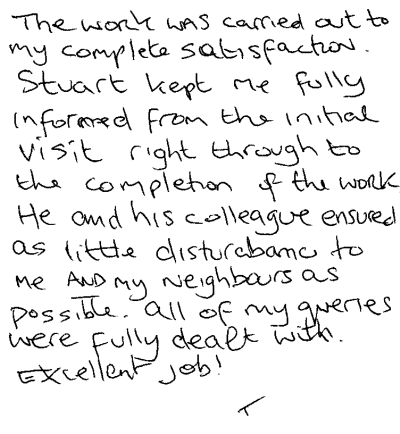 The work was carried out to
my complete satisfaction.
Stuart kept me fully
informed from the initial
visit right through to
the completion of the work
He and his colleague ensured
as little disturbance to
me AND my neighbours as
possible. All of my queries
were fully dealt with.
Excellent job!